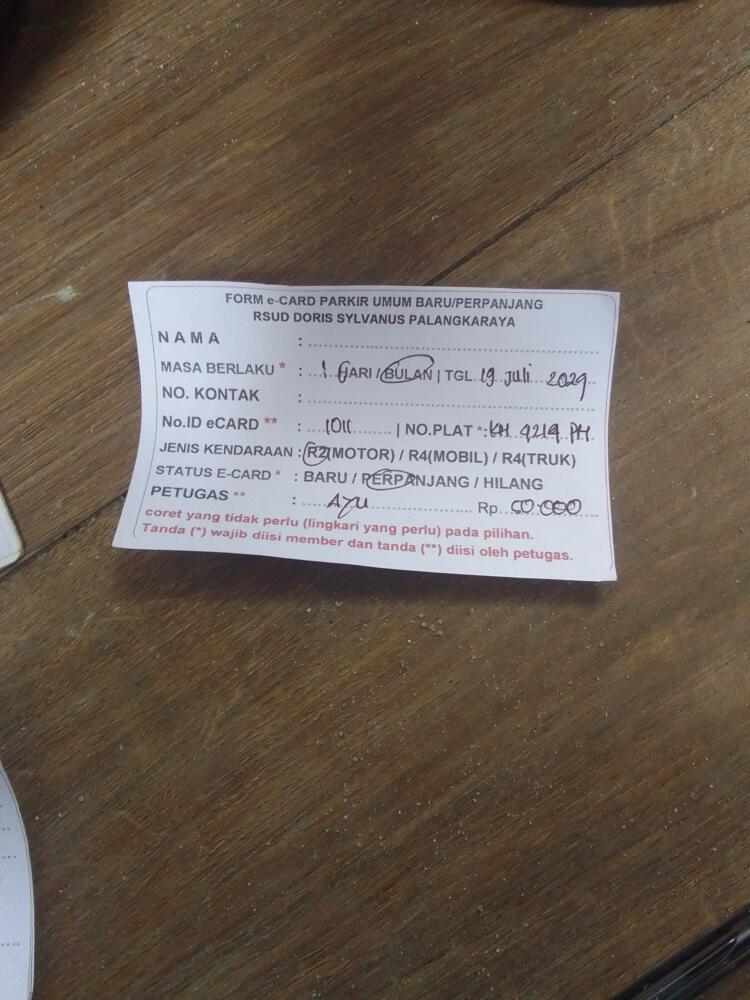 FORM e-CARD PARKIR UMUM BARU/PERPANJANG
RSUD DORIS SYLVANUS PALANGKARAYA
NAMA :
MASA BERLAKU * : 1 HARI / BULAN | TGL 19 Juli 2029
NO. KONTAK :
No.ID eCARD ** : 1011 | NO.PLAT *: KH 4219 PH
JENIS KENDARAAN : R2(MOTOR) / R4(MOBIL) / R4(TRUK)
STATUS E-CARD * : BARU / PERPANJANG / HILANG
PETUGAS ** : Ayu Rp 60.000
coret yang tidak perlu (lingkari yang perlu) pada pilihan.
Tanda (*) wajib diisi member dan tanda (**) diisi oleh petugas.